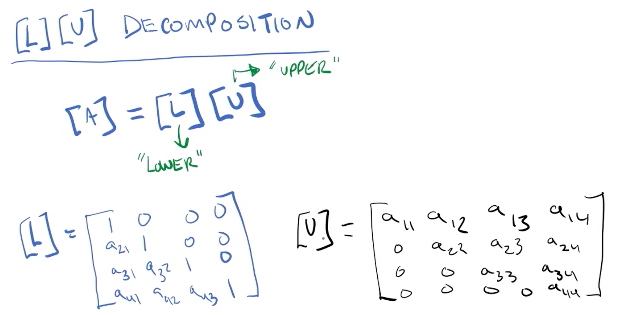 [L][U] DECOMPOSITION
"UPPER"
[A] = [L][U]
"LOWER"
[L] = [1 0 0 0
a21 1 0 0
a31 a32 1 0
a41 a42 a43 1]
[U] = [a11 a12 a13 a14
0 a22 a23 a24
0 0 a33 a34
0 0 0 0 a44]